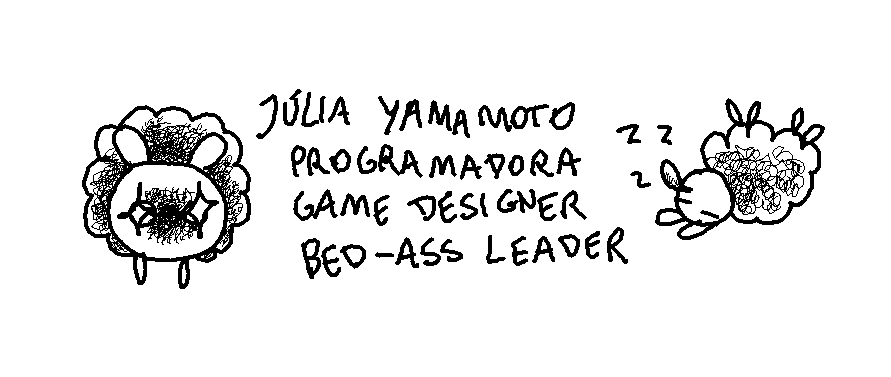 JÚLIA YAMAMOTO
PROGRAMADORA
GAME DESIGNER
BED-ASS LEADER
z z
z